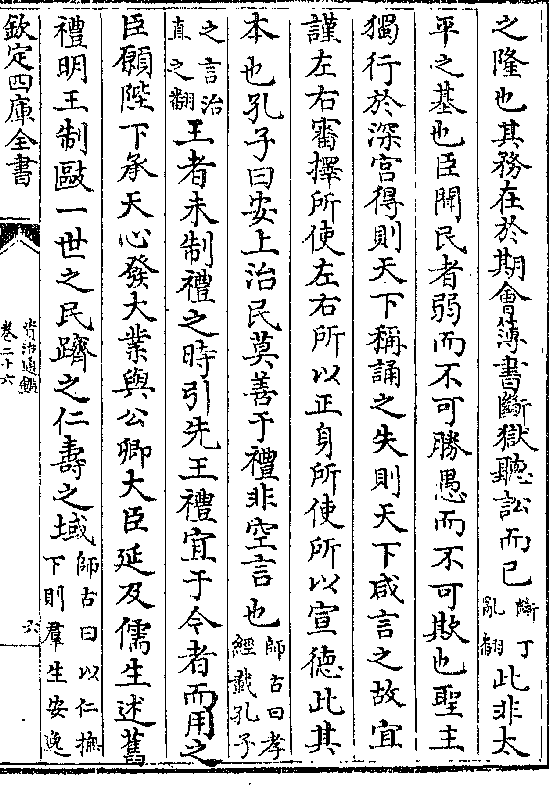 之隆也其務在於期會簿書斷獄聽訟而已斷丁亂翻此非太
平之基也臣聞民者弱而不可勝愚而不可欺也聖主
獨行於深宫得則天下稱誦之失則天下咸言之故宜
謹左右審擇所使左右所以正身所使所以宣德此其
本也孔子曰安上治民莫善于禮非空言也師古曰孝經載孔子
之言治直之翻王者未制禮之時引先王禮宜于今者而用之
臣願陛下承天心發大業與公卿大臣延及儒生述舊
禮明王制敺一世之民躋之仁壽之域師古曰以仁撫下則羣生安逸
欽定四庫全書
資治通鑑
卷二十六
六